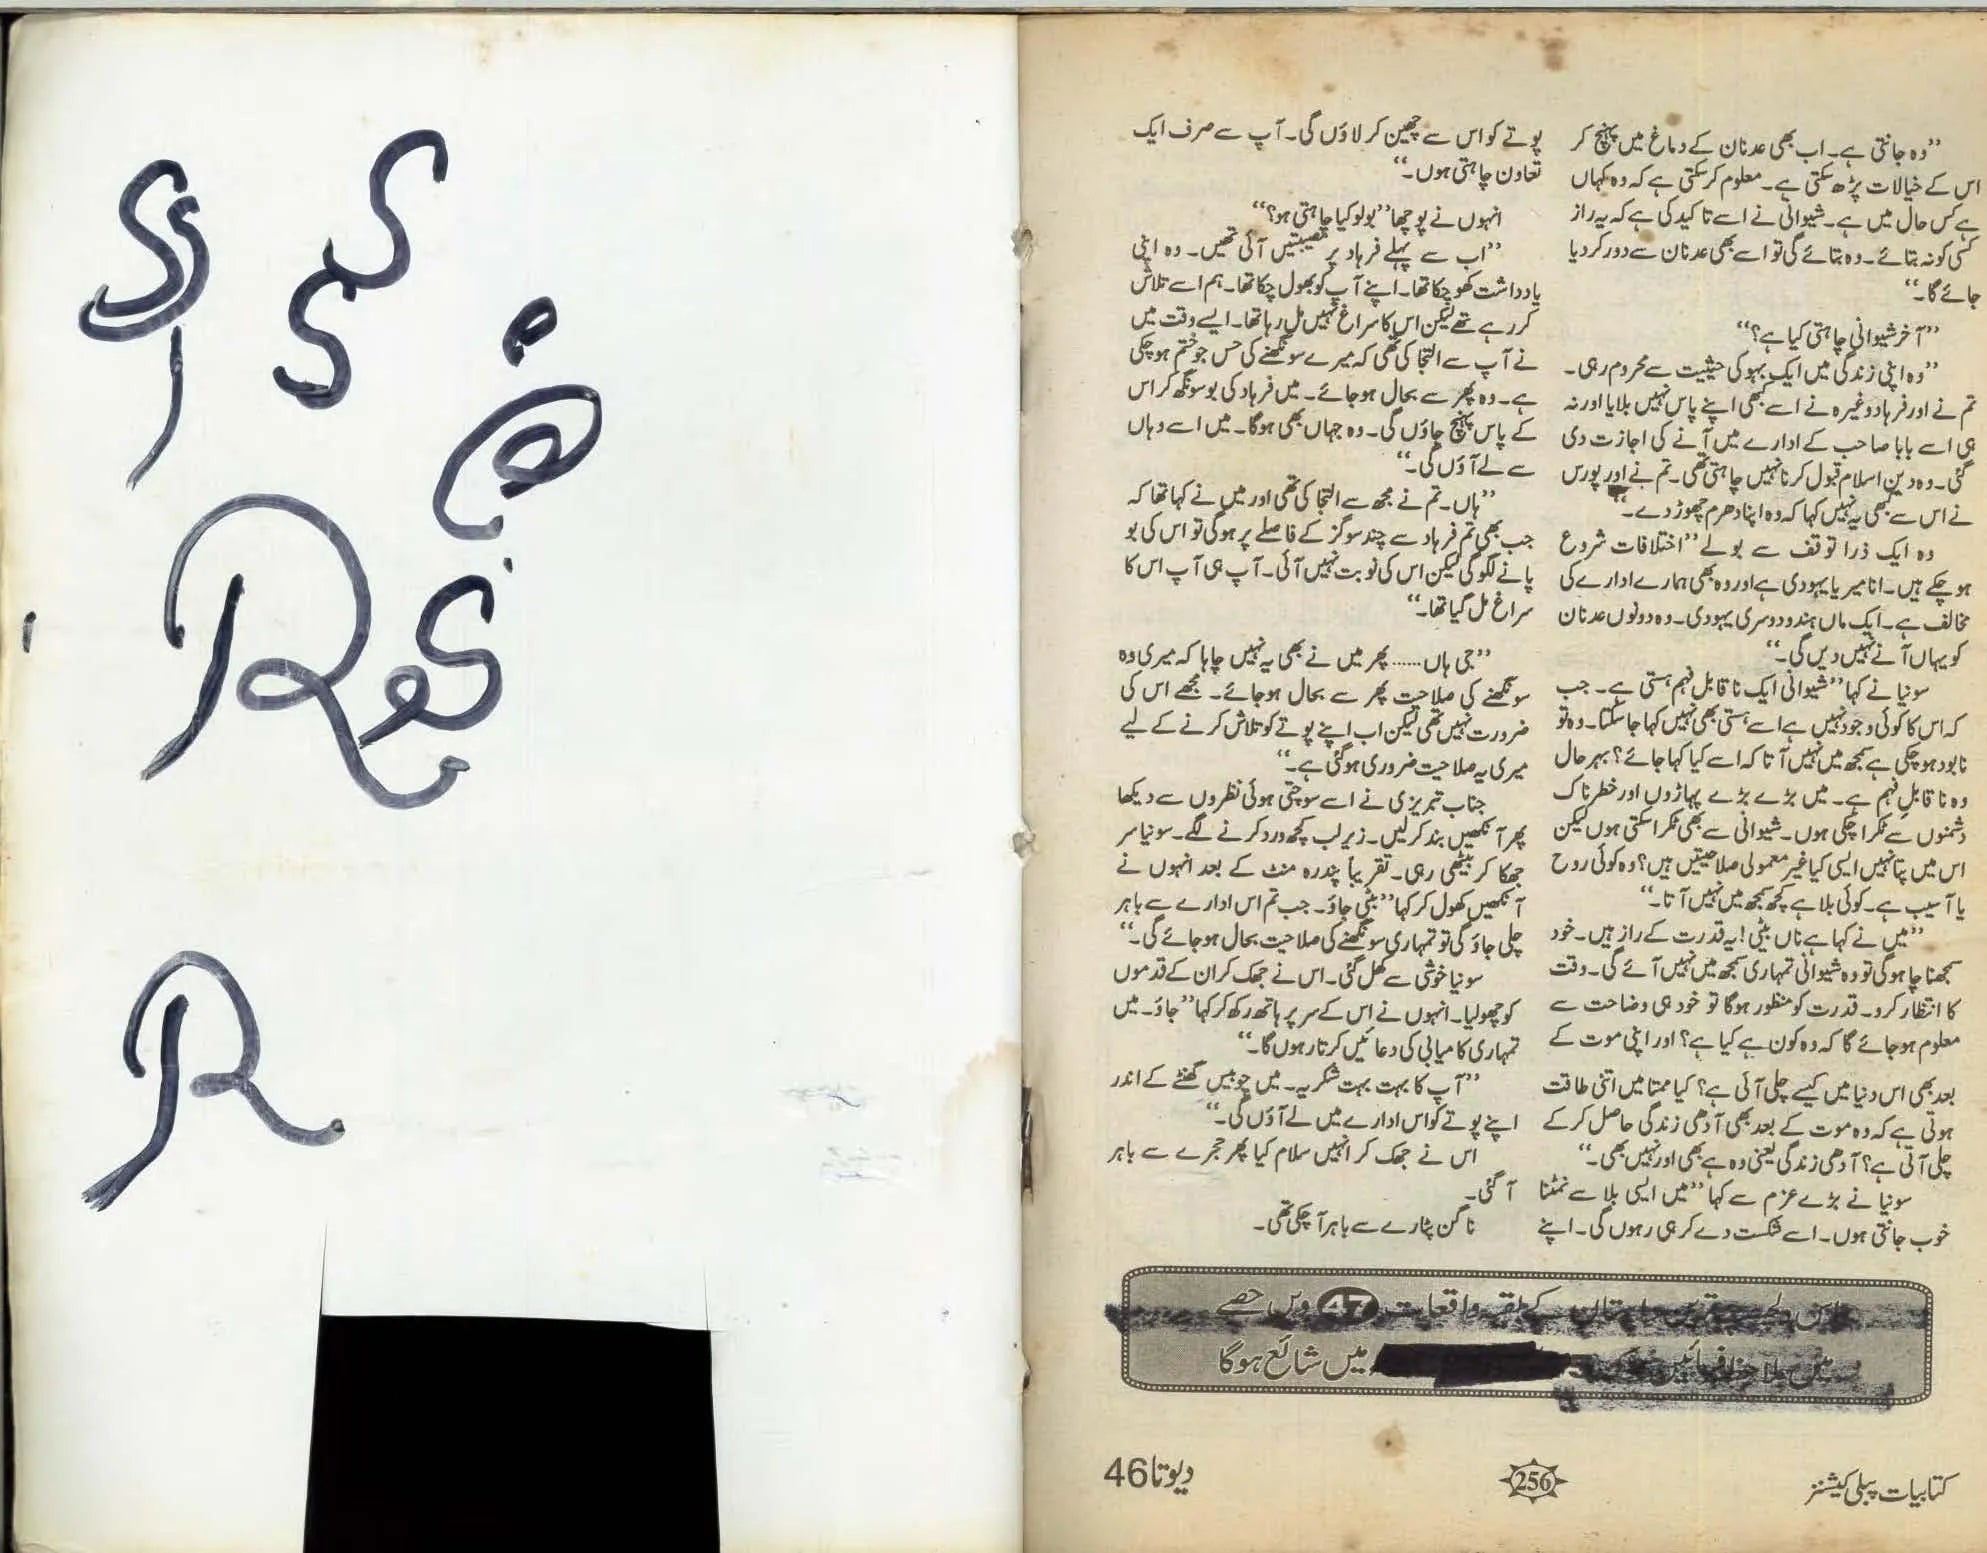 ”وہ جانتی ہے۔ اب بھی عدنان کے دماغ میں پہنچ کر
اس کے خیالات پڑھ سکتی ہے۔ معلوم کرسکتی ہے کہ وہ کہاں
ہے کس حال میں ہے۔ شیوانی نے اسے تاکید کی ہے کہ یہ راز
کسی کو نہ بتائے۔ وہ بتائے گی تو اسے بھی عدنان سے دور کردیا
جائے گا۔“
”آخر شیوانی چاہتی کیا ہے؟“
”وہ اپنی زندگی میں ایک بہو کی حیثیت سے محروم رہی۔
تم نے اور فرہاد وغیرہ نے اسے کبھی اپنے پاس نہیں بلایا اور نہ
ہی اسے بابا صاحب کے ادارے میں آنے کی اجازت دی
گئی۔ وہ دین اسلام قبول کرنا نہیں چاہتی تھی۔ تم نے اور پورس
نے اس سے کبھی یہ نہیں کہا کہ وہ اپنا دھرم چھوڑ دے۔“
وہ ایک ذرا توقف سے بولے ”اختلافات شروع
ہوچکے ہیں۔ انا میریا یہودی ہے اور وہ بھی ہمارے ادارے کی
مخالف ہے۔ ایک ماں ہندو دوسری یہودی۔ وہ دونوں عدنان
کو یہاں آنے نہیں دیں گی۔“
سونیا نے کہا ”شیوانی ایک ناقابل فہم ہستی ہے۔ جب
کہ اس کا کوئی وجود نہیں ہے اسے ہستی بھی نہیں کہا جاسکتا۔ وہ تو
نابود ہوچکی ہے سمجھ میں نہیں آتا کہ اسے کیا کہا جائے؟ بہرحال
وہ ناقابل فہم ہے۔ میں بڑے بڑے پہاڑوں اور خطرناک
دشمنوں سے ٹکراچکی ہوں۔ شیوانی سے بھی ٹکراسکتی ہوں لیکن
اس میں پتا نہیں ایسی کیا غیر معمولی صلاحیتیں ہیں؟ وہ کوئی روح
یا آسیب ہے۔ کوئی بلا ہے کچھ سمجھ میں نہیں آتا۔“
”میں نے کہا ہے ناں بیٹی! یہ قدرت کے راز ہیں۔ خود
سمجھنا چاہوگی تو وہ شیوانی تمہاری سمجھ میں نہیں آئے گی۔ وقت
کا انتظار کرو۔ قدرت کو منظور ہوگا تو خود ہی وضاحت سے
معلوم ہوجائے گا کہ وہ کون ہے کیا ہے؟ اور اپنی موت کے
بعد بھی اس دنیا میں کیسے چلی آئی ہے؟ کیا ممتا میں اتنی طاقت
ہوتی ہے کہ وہ موت کے بعد بھی آدھی زندگی حاصل کرکے
چلی آتی ہے؟ آدھی زندگی یعنی وہ ہے بھی اور نہیں بھی۔“
سونیا نے بڑے عزم سے کہا ”میں ایسی بلا سے نمٹنا
خوب جانتی ہوں۔ اسے شکست دے کر ہی رہوں گی۔ اپنے
پوتے کو اس سے چھین کر لاؤں گی۔ آپ سے صرف ایک
تعاون چاہتی ہوں۔“
انہوں نے پوچھا ”بولو کیا چاہتی ہو؟“
”اب سے پہلے فرہاد پر مصیبتیں آئی تھیں۔ وہ اپنی
یادداشت کھوچکا تھا۔ اپنے آپ کو بھول چکا تھا۔ ہم اسے تلاش
کررہے تھے لیکن اس کا سراغ نہیں مل رہا تھا۔ ایسے وقت میں
نے آپ سے التجا کی تھی کہ میرے سونگھنے کی حس جو ختم ہوچکی
ہے۔ وہ پھر سے بحال ہوجائے۔ میں فرہاد کی بو سونگھ کر اس
کے پاس پہنچ جاؤں گی۔ وہ جہاں بھی ہوگا۔ میں اسے وہاں
سے لے آؤں گی۔“
”ہاں۔ تم نے مجھ سے التجا کی تھی اور میں نے کہا تھا کہ
جب بھی تم فرہاد سے چند سو گز کے فاصلے پر ہوگی تو اس کی بو
پانے لگو گی لیکن اس کی نوبت نہیں آئی۔ آپ ہی آپ اس کا
سراغ مل گیا تھا۔“
”جی ہاں...... پھر میں نے بھی یہ نہیں چاہا کہ میری وہ
سونگھنے کی صلاحیت پھر سے بحال ہوجائے۔ مجھے اس کی
ضرورت نہیں تھی لیکن اب اپنے پوتے کو تلاش کرنے کے لیے
میری یہ صلاحیت ضروری ہوگئی ہے۔“
جناب تبریزی نے اسے سوچتی ہوئی نظروں سے دیکھا
پھر آنکھیں بند کرلیں۔ زیر لب کچھ ورد کرنے لگے۔ سونیا سر
جھکا کر بیٹھی رہی۔ تقریباً پندرہ منٹ کے بعد انہوں نے
آنکھیں کھول کر کہا ”بیٹی جاؤ۔ جب تم اس ادارے سے باہر
چلی جاؤ گی تو تمہاری سونگھنے کی صلاحیت بحال ہوجائے گی۔“
سونیا خوشی سے کھل گئی۔ اس نے جھک کر ان کے قدموں
کو چھولیا۔ انہوں نے اس کے سر پر ہاتھ رکھ کر کہا ”جاؤ۔ میں
تمہاری کامیابی کی دعائیں کرتا رہوں گا۔“
”آپ کا بہت بہت شکریہ۔ میں چوبیس گھنٹے کے اندر
اپنے پوتے کو اس ادارے میں لے آؤں گی۔“
اس نے جھک کر انہیں سلام کیا پھر حجرے سے باہر
آگئی۔
ناگن پٹارے سے باہر آچکی تھی۔
داستان کے بقیہ واقعات 47 ویں حصے
میں ملاحظہ فرمائیں میں شائع ہوگا
کتابیات پبلی کیشنز
256
دیوتا 46
S
S
S
R
S
R